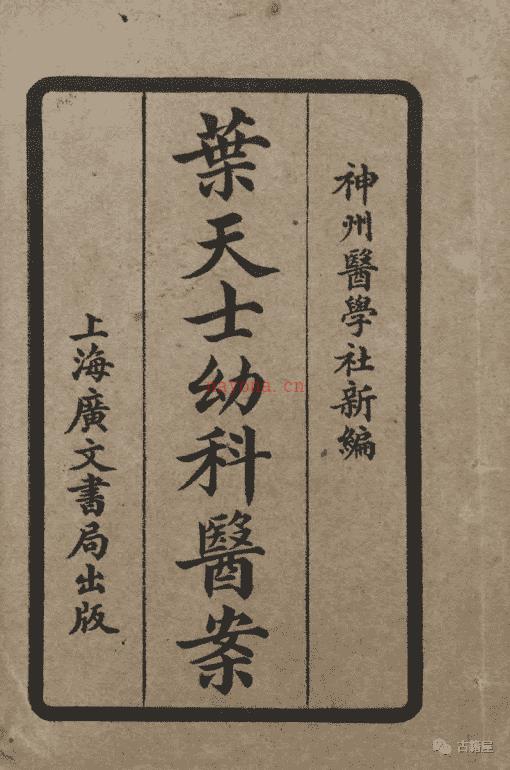 神州醫學社新編
葉天士幼科醫案
上海廣文書局出版
古籍屋